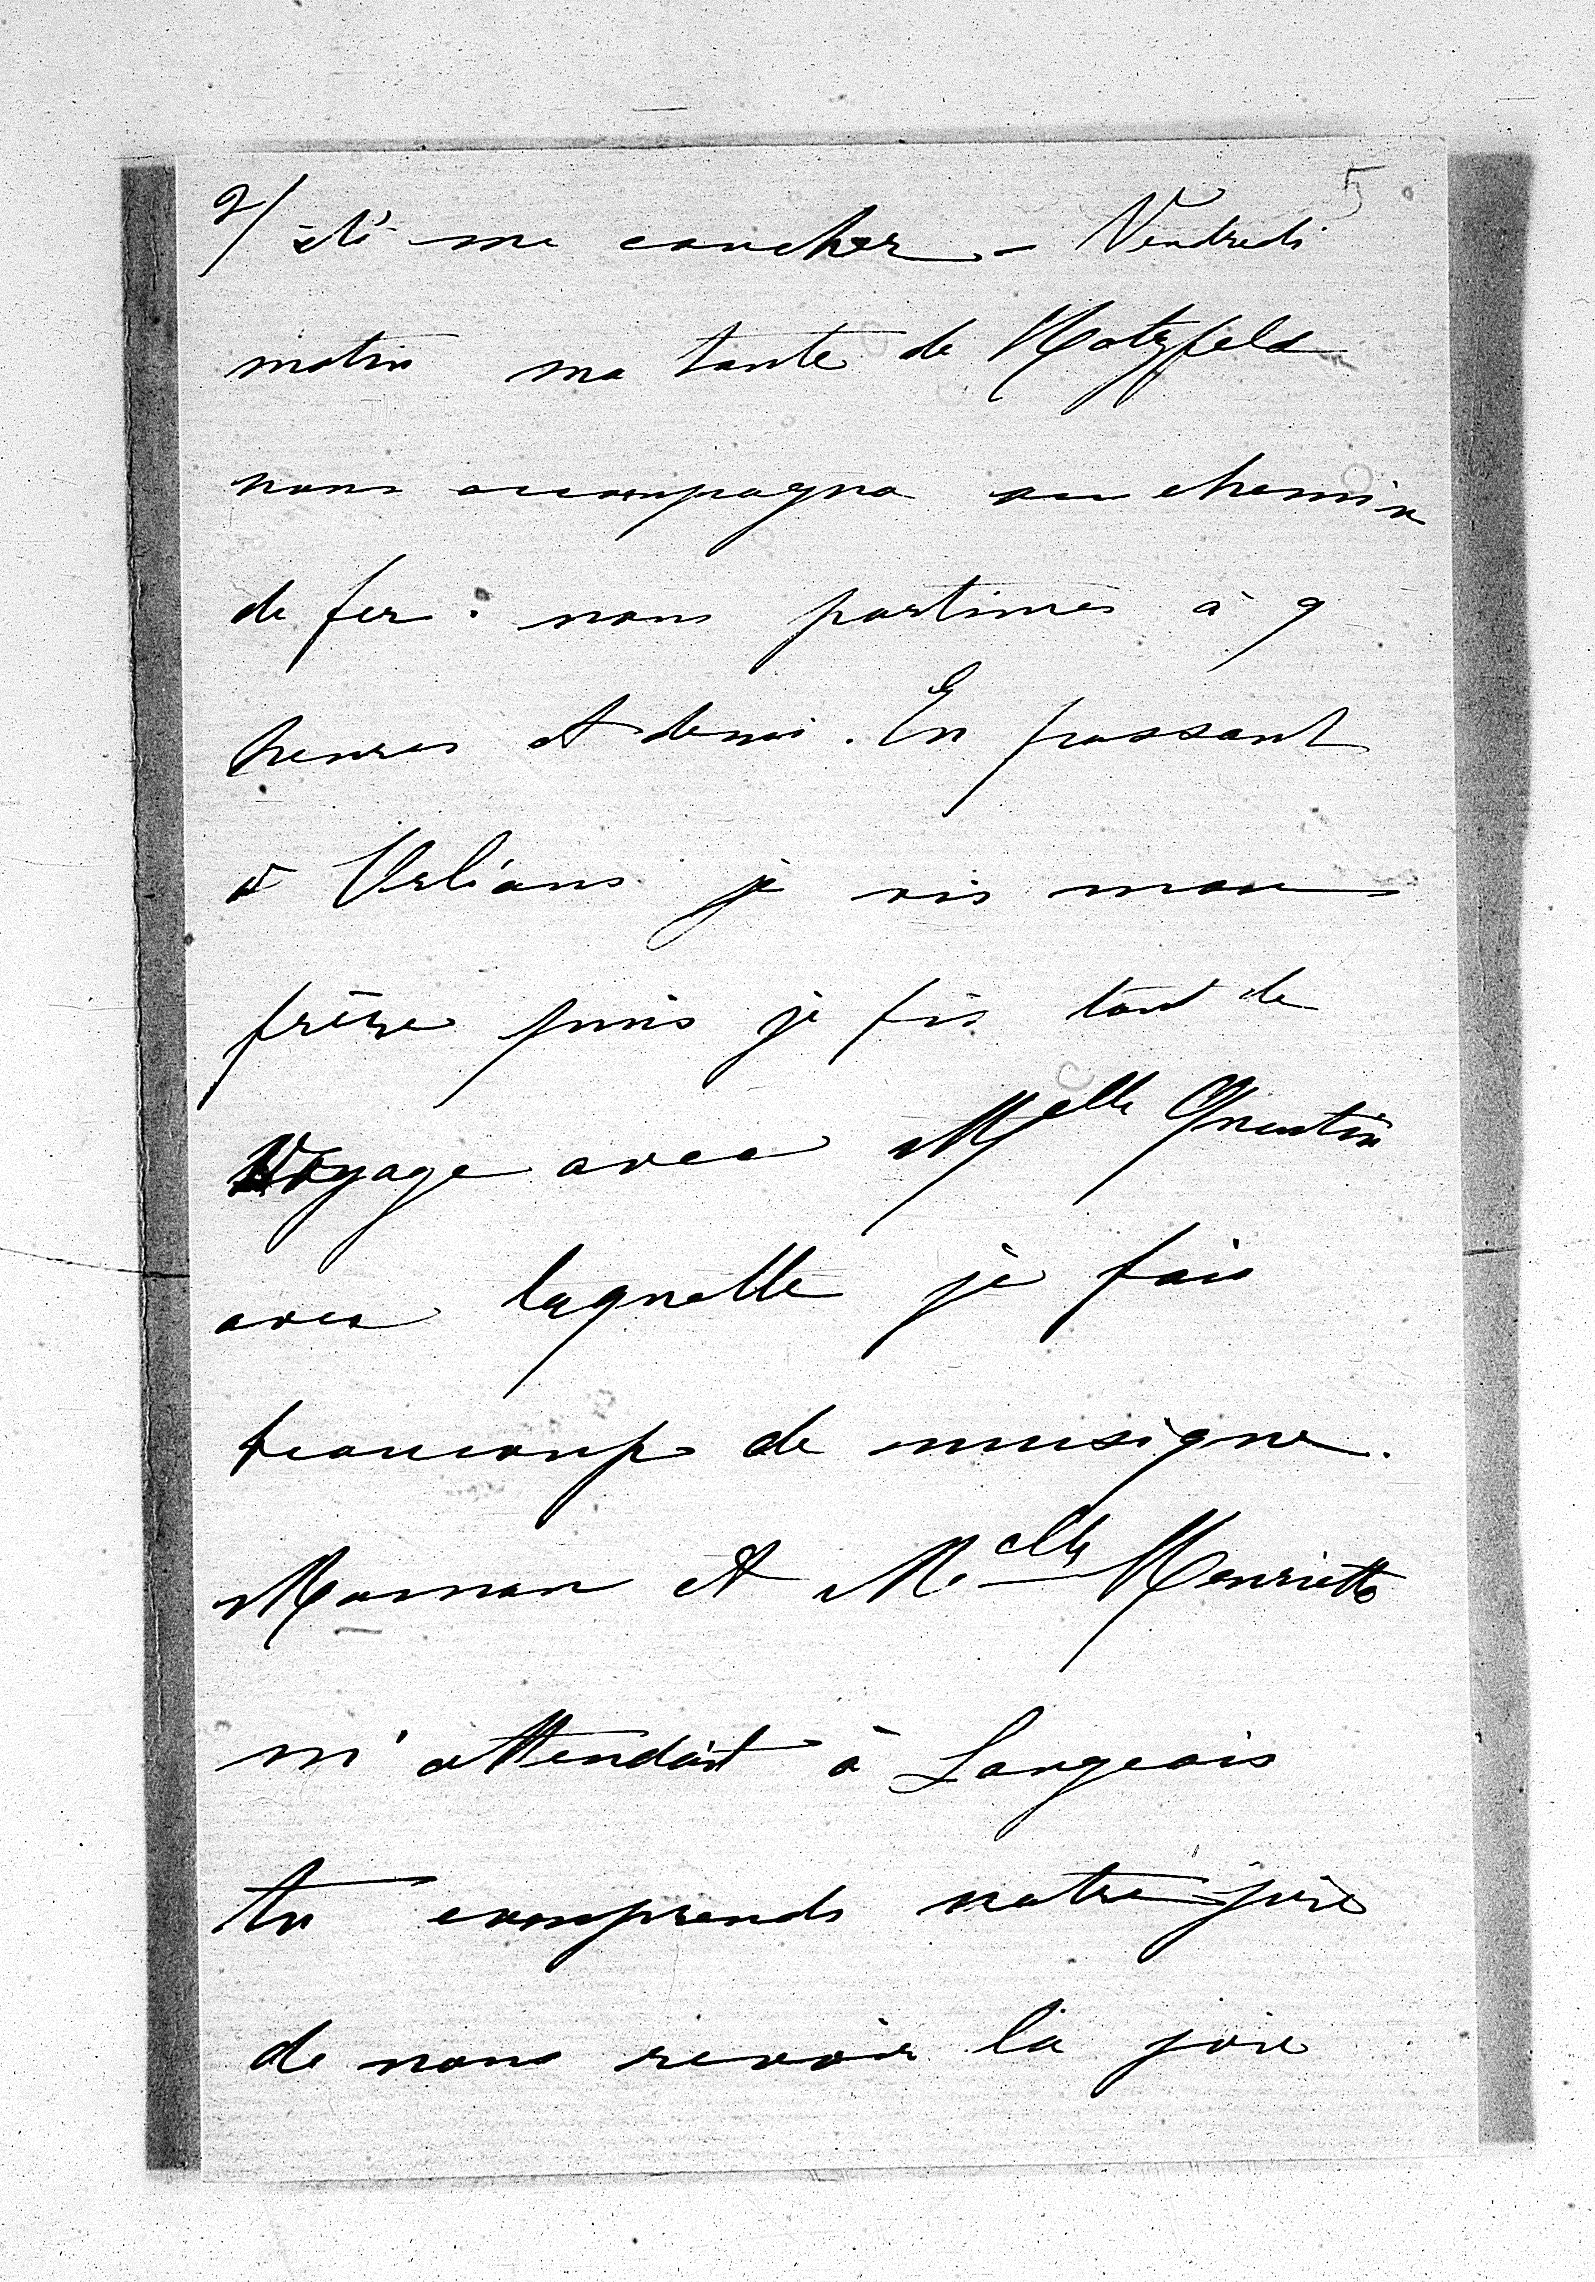 5
2/ été me coucher - Vendredi
matin ma tante de Hatzfeld
nous accompagna au chemin
de fer. nous partimes à 9
heures et demi. En passant
à Orléans je vis mon
frère puis je fis tout le
voyage avec Melle Quentin
avec laquelle je fais
beaucoup de musique.
Maman et Melle Henriette
m'attendait à Langeais
tu comprends notre joie
de nous revoir la joie